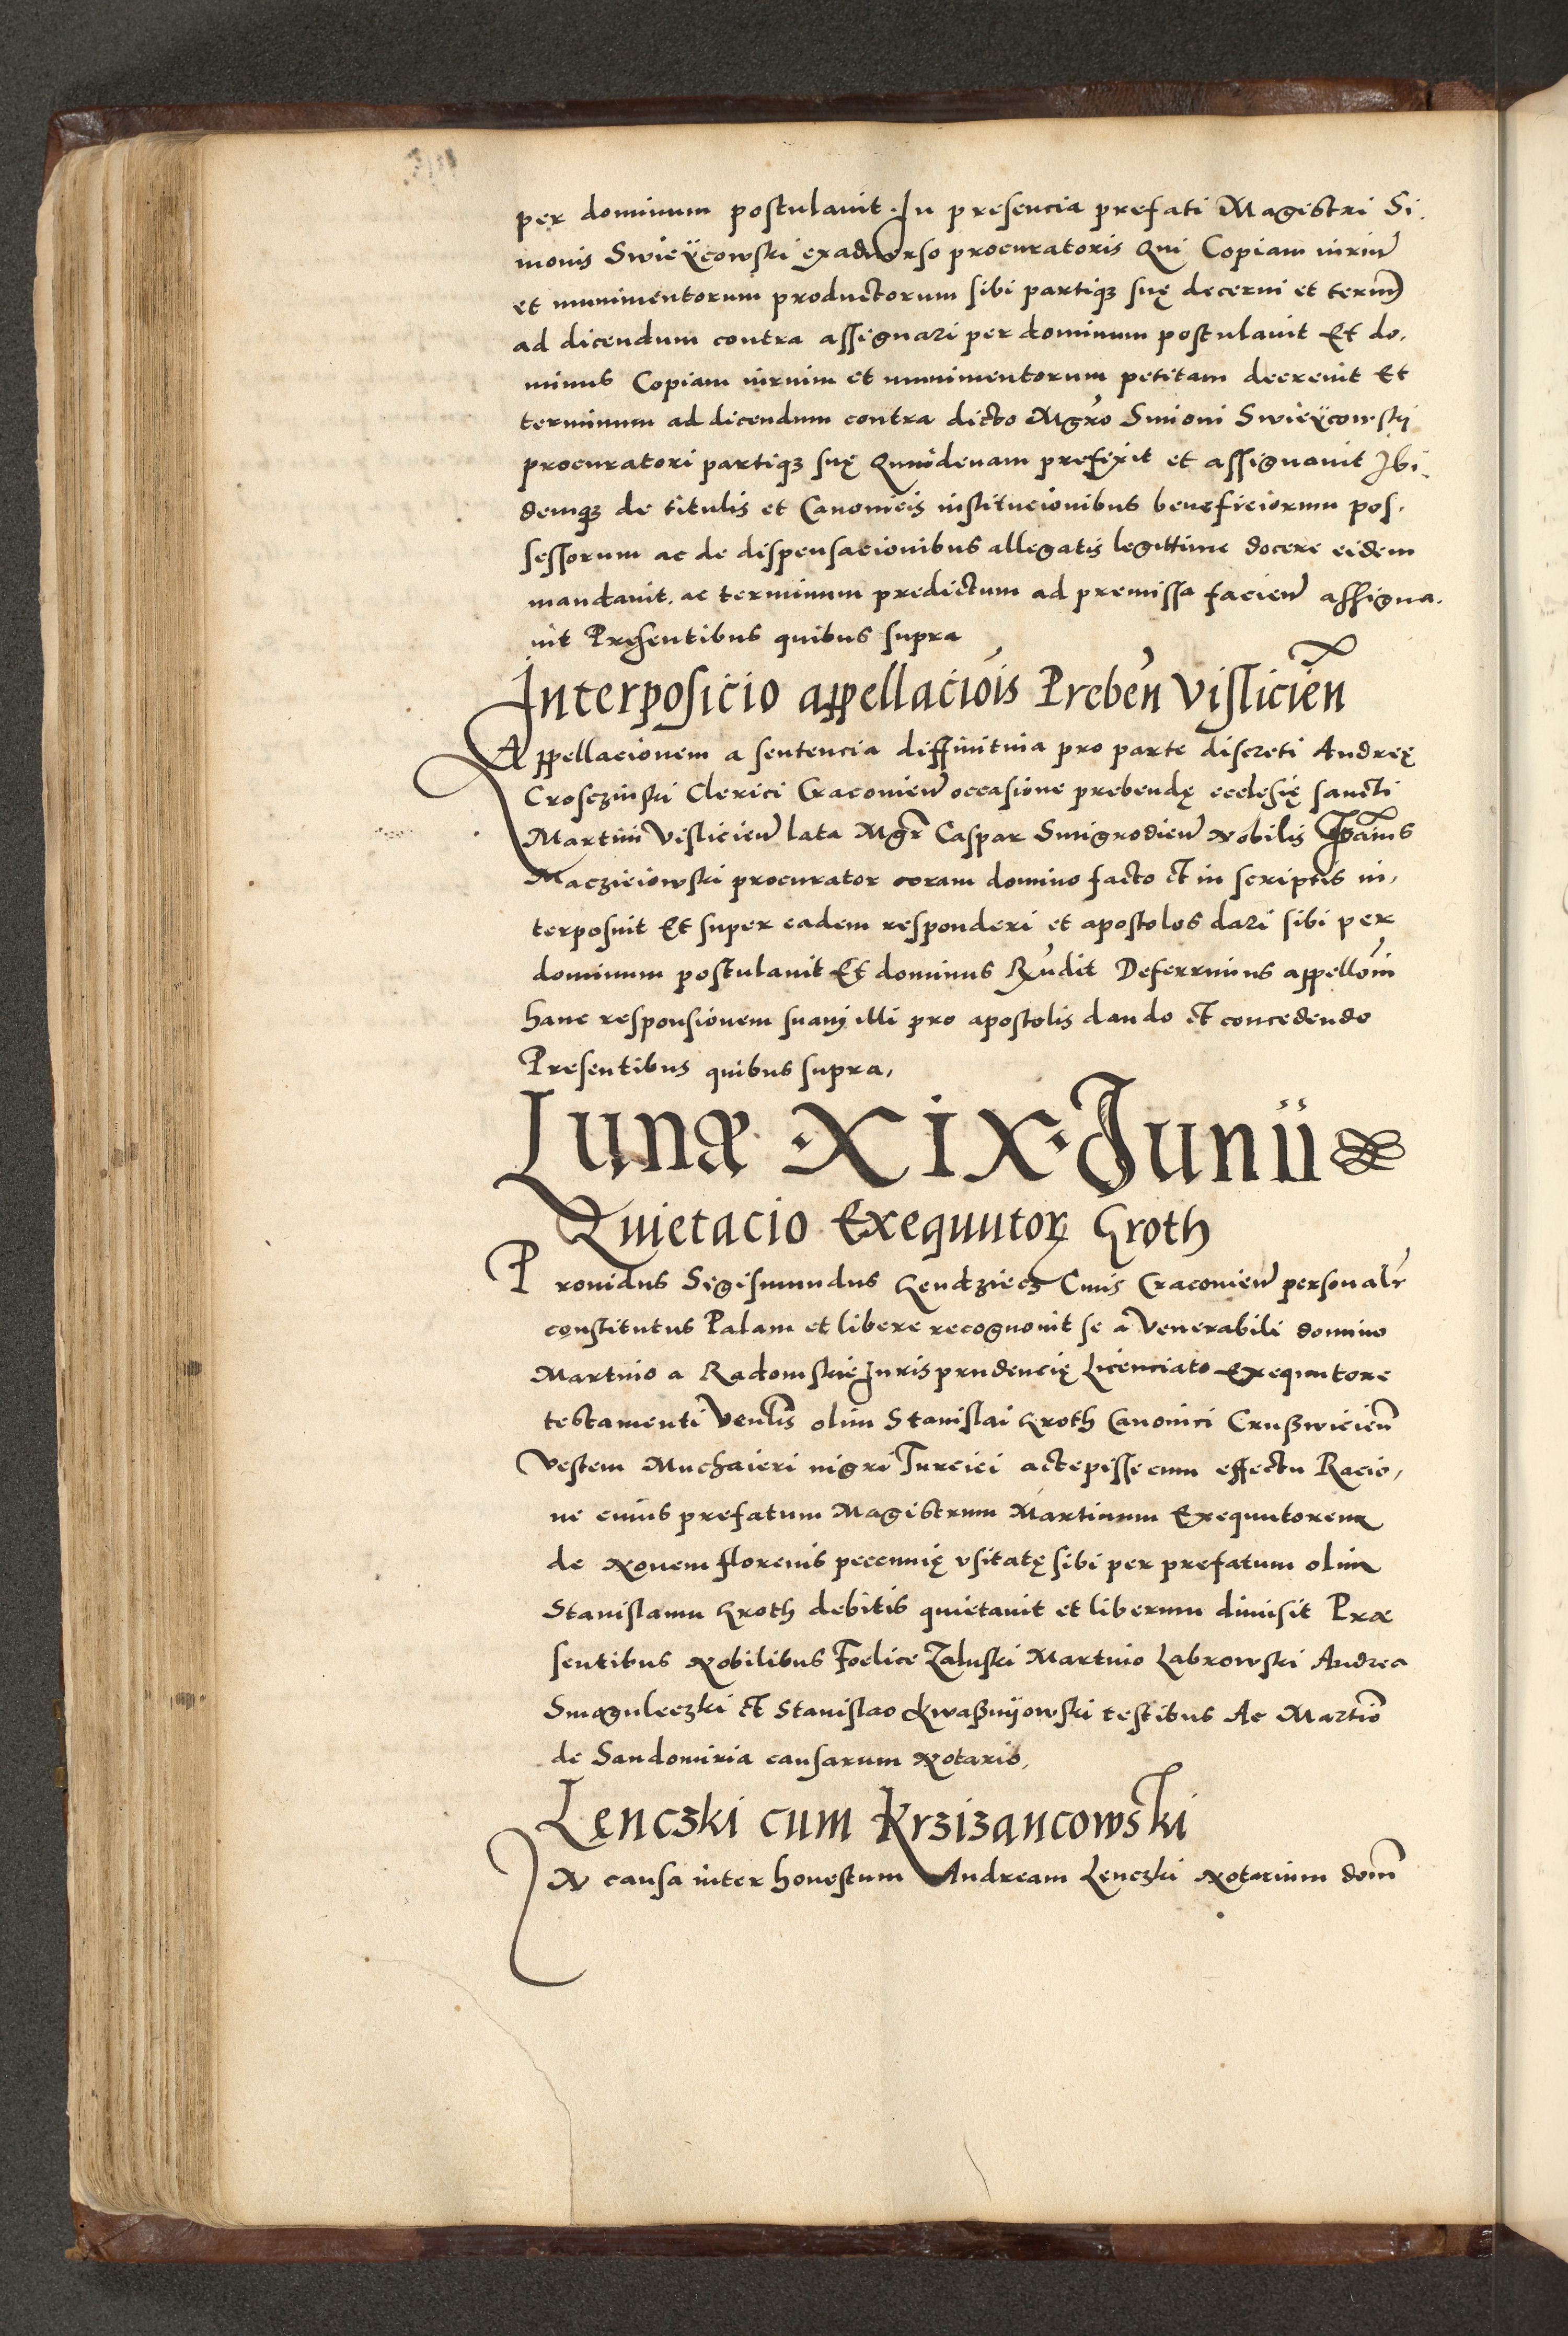 per dominum postulavit. In presencia prefati Magistri Si-
monis Swieÿcowski exadverso procuratoris Qui Copiam iuriu͂
et munimentorum productorum sibi partiqꝫ suę decerni et term͂
ad dicendum contra assignari per dominum postulavit Et do-
minus Copiam iurium et munimentorum petitam decrevit Et
terminum ad dicendum contra dicto Mgro Simoni Swieÿcowski
procuratori partiqꝫ suę Quindenam prefixit et assignavit Ibi-
demqꝫ de titulis et Canonicis institucionibus beneficiorum pos-
sessorum ac de dispensacionibus allegatis legittime docere eidem
mandavit. ac terminum predictum ad premissa facien͂ assigna-
vit Presentibus quibus supra
Interposicio appellacio͂is Preben͂ Vislicien͂
Appellacionem a sentencia diffinitiva pro parte discreti Andreę
Crosczinski Clerici Cracovien͂ occasione prebendę ecclesię sancti
Martini Vislicien͂ lata Mgr͂ Caspar Smigrodien͂ Nobilis
Maczieiowski procurator coram domino facto et in scriptis in-
terposuit Et super eadem responderi et apostolos dari sibi per
dominum postulavit Et dominus Rn͂dit Deferimus appello͂ni
hanc responsionem suam illi pro apostolis dando et concedendo
Presentibus quibus supra,
Lunæ .XIX. Junii
Quietacio Exequutorꝝ Kroth
Providus Sigismundus Kendziecz Civis Cracovien͂ personalr͂
constitutus Palam et libere recognovit se a Venerabili domino
Martino a Radomskie Iurisprudencię Licenciato Exequutore
testamenti Venlis͂ olim Stanislai Kroth Canonici Crußwicien͂
Vestem Muchaieri nigri Turcici accepisse cum effectu Racio-
ne cuius prefatum Magistrum Martinum Exequutorem
de Novem florenis peccunię usitatę sibi per prefatum olim
Stanislaum Kroth debitis quietavit et liberum dimisit Præ
sentibus Nobilibus Foelice Zaluski Martino Labrowski Andrea
Smoguleczki et Stanislao Kwaßnijowski testibus Ac Martio͂
de Sandomiria causarum Notario,
Lenczki cum Krzizancowski
IN causa inter honestum Andream Lenczki Notarium dom͂